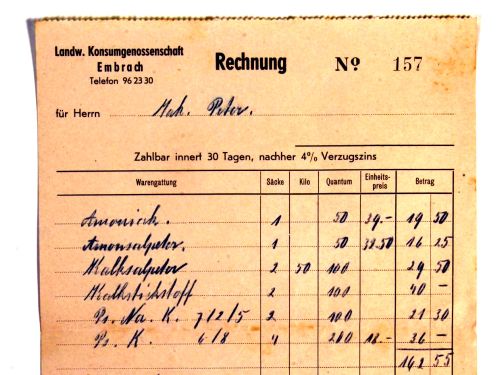 Landw. Konsumgenossenschaft
Embrach
Telefon 96 23 30
Rechnung
Nº 157
für Herrn Peter.
Zahlbar innert 30 Tagen, nachher 4% Verzugszins
Warengattung Säcke Kilo Quantum Einheits-preis Betrag
Amoniak. 1 50 39.- 19 50
Amonsalpeter. 1 50 32.50 16 25
Kalksalpeter 2 50 100 29 50
Kalkstickstoff 2 100 40 —
Ps. Na. K. 7/2/5 2 100 21 30
Ps. K. 6/8 4 200 18.- 36 —
162 55